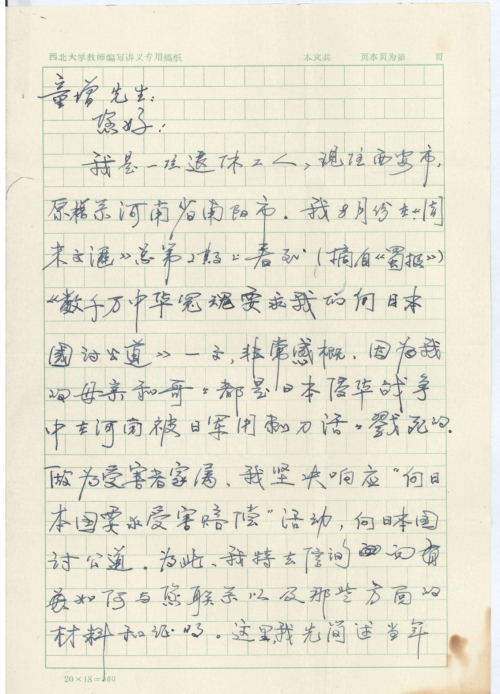 西北大学教师编写讲义专用稿纸 本文共 页本页为第 页
童增先生:
您好:
我是一位退休工人,现住西安市,
原籍系河南省南阳市。我8月份在《周
末文汇》总第2期上看到(摘自《蜀报》)
《数千万中华冤魂要求我们向日本
国讨公道》一文,非常感概。因为我
的母亲和哥哥都是日本侵华战争
中在河南被日军用刺刀活活戳死的。
做为受害者家属、我坚决响应"向日
本国要求受害赔偿"活动,向日本国
讨公道。为此、我特去信询问
如何与您联系以及那些方面的
材料和证明。这里我先简述当年
20×18=360